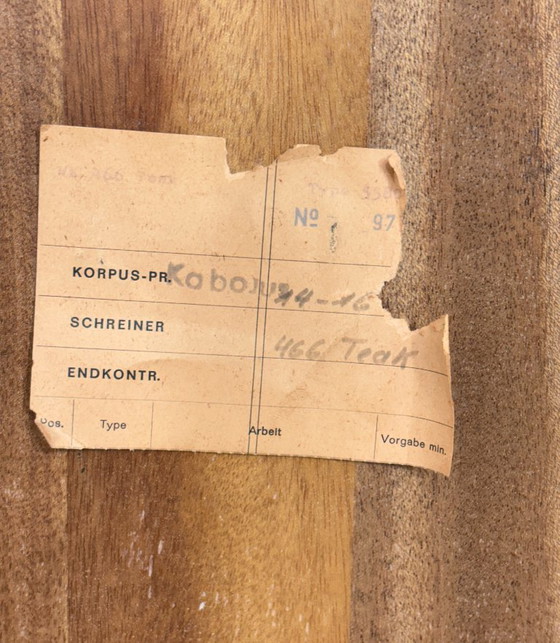 Type
Nº 97
KORPUS-PR.
14-16
SCHREINER
466 Teak
ENDKONTR.
Type Arbeit Vorgabe min.